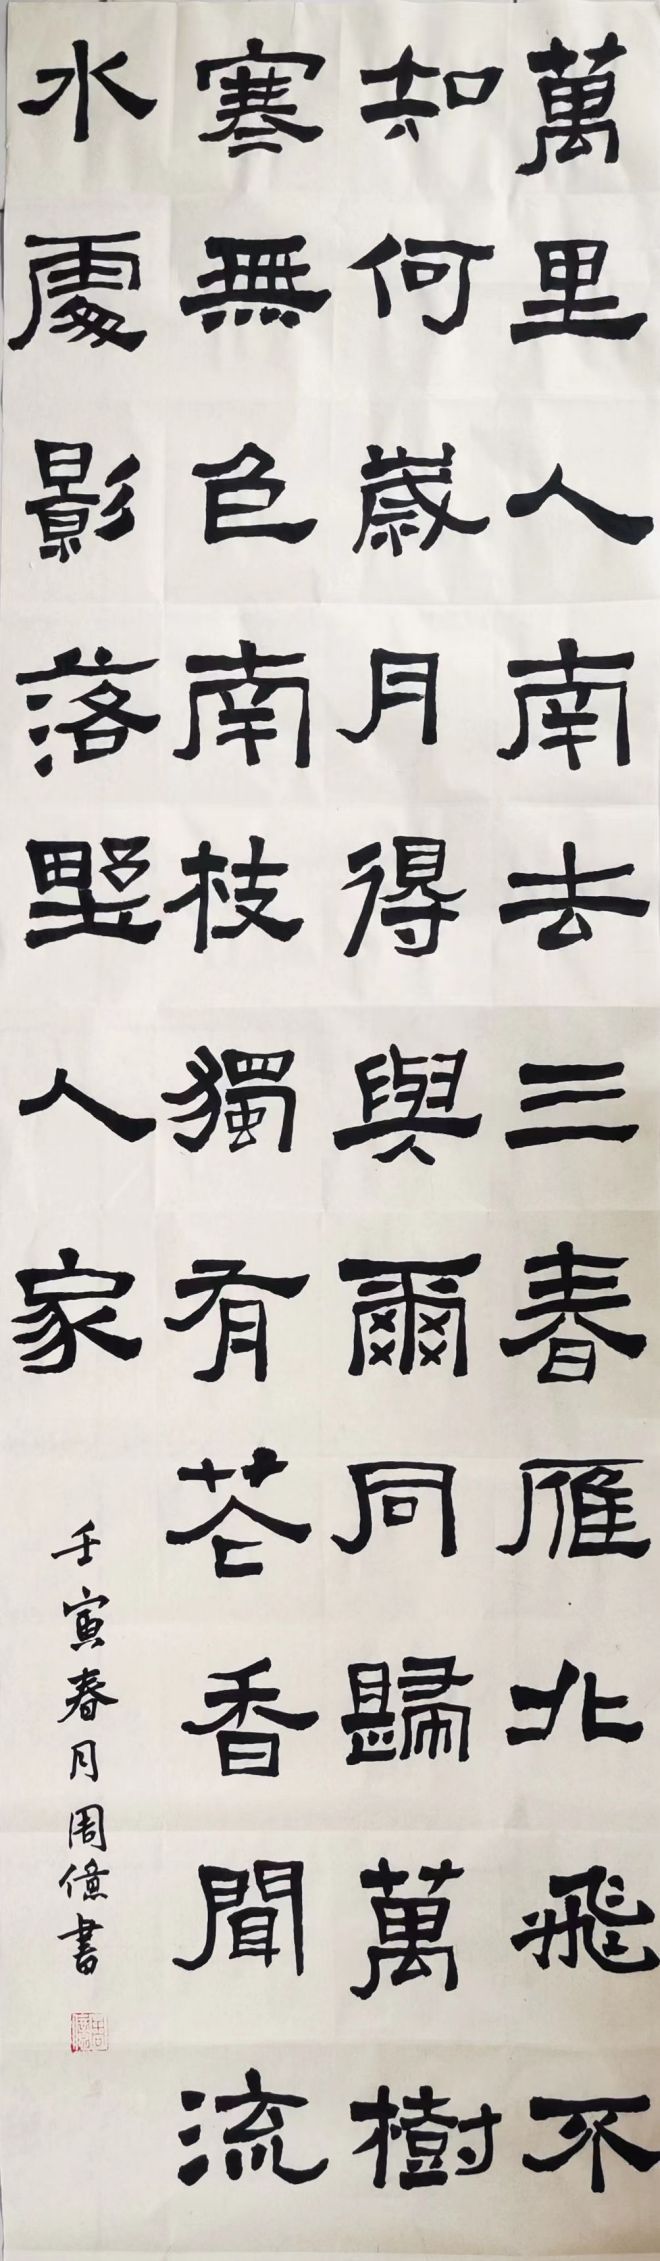 萬里人南去三春雁北飛不
知何歲月得與爾同歸萬樹
寒無色南枝獨有芲香聞流
水處影落野人家
壬寅春月周億書